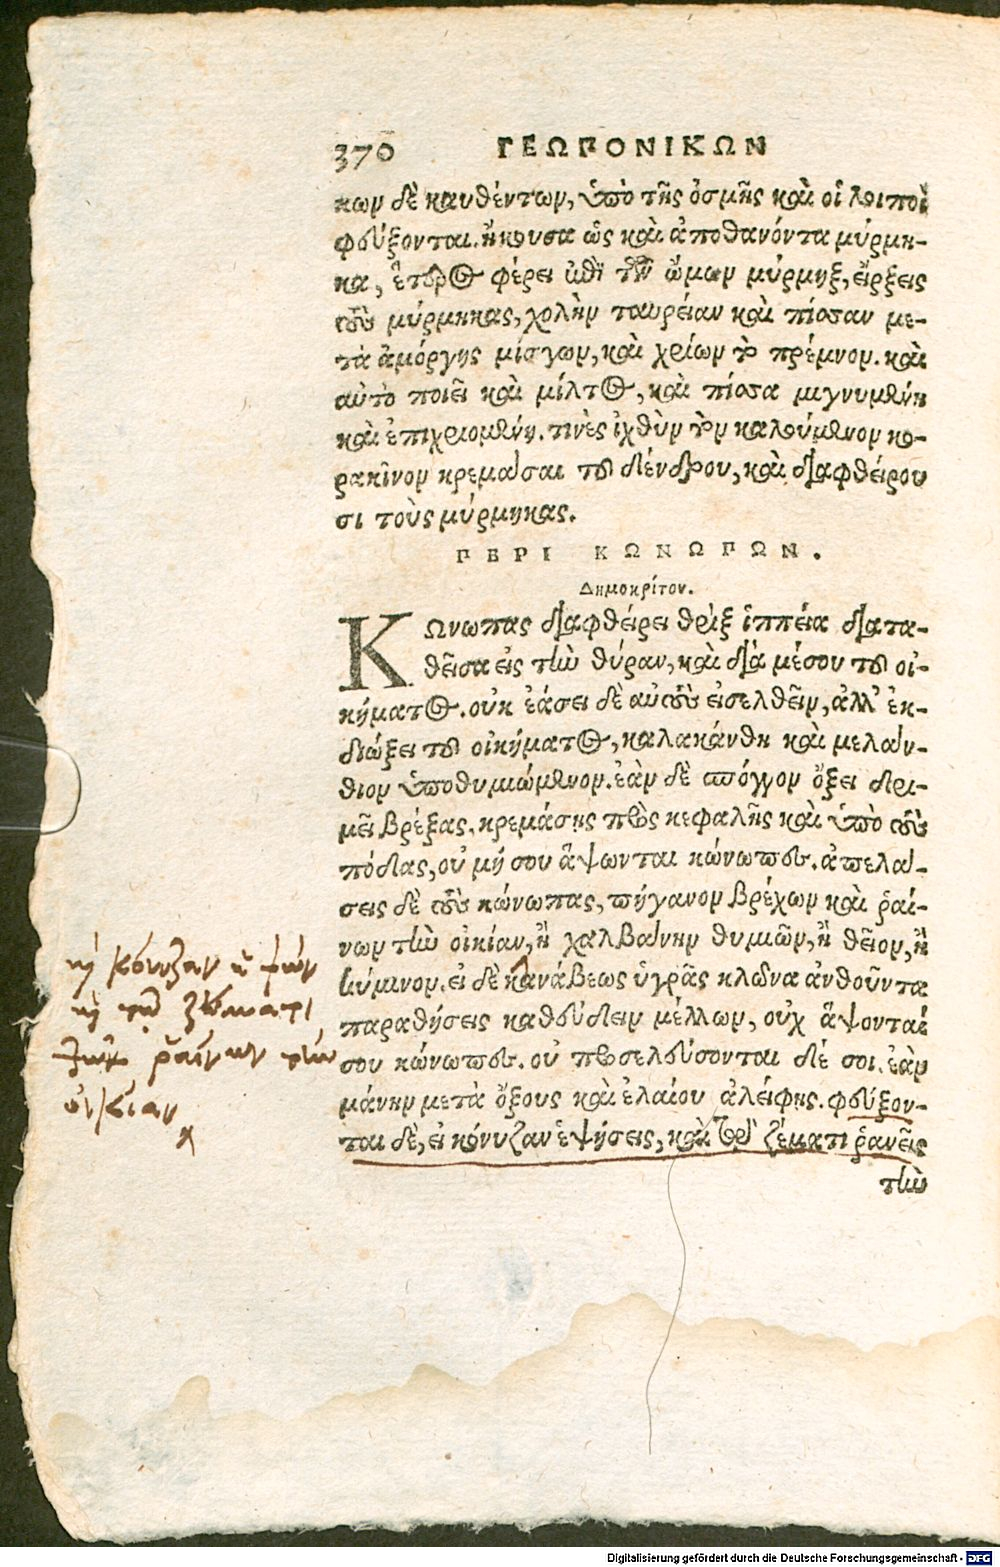 370 ΓΕΩΠΟΝΙΚΩΝ
κων δὲ καυθέντων, ὑπὸ τῆς ὀσμῆς καὶ οἱ λοιποὶ
φεύξονται. ἤκουσα ὡς καὶ ἀποθανόντα μύρμη-
κα, ἕτερος φέρει ἐπὶ τῶν ὤμων μύρμηξ, εἴρξεις
τοὺς μύρμηκας, χολὴν ταυρείαν καὶ πίσσαν με-
τὰ ἀμόργης μίσγων, καὶ χρίων τὸ πρέμνον. καὶ
αὐτὸ ποιεῖ καὶ μίλτος, καὶ πίσσα μιγνυμένη
καὶ ἐπιχριομένη. τινὲς ἰχθὺν τὸν καλούμενον κο-
ρακῖνον κρεμῶσαι τοῦ δένδρου, καὶ διαφθείρου
σι τοὺς μύρμηκας.
ΠΕΡΙ ΚΩΝΩΠΩΝ.
Δημοκρίτου.
ΚΩνωπας διαφθείρει θρὶξ ἱππεία διατα-
θεῖσα εἰς τὴν θύραν, καὶ διὰ μέσου τοῦ οἰ-
κήματος. οὐκ ἐάσει δὲ αὐτοὺς εἰσελθεῖν, ἀλλ' ἐκ-
διώξει τοῦ οἰκήματος, καλακάνθη καὶ μελάν-
θιον ὑποθυμιώμενον. ἐὰν δὲ σπόγγον ὄξει δρι-
μεῖ βρέξας, κρεμάσῃς πρὸς κεφαλῆς καὶ ὑπὸ τοὺς
πόδας, οὐ μή σου ἅψωνται κώνωπες. ἀπελά-
σεις δὲ τοὺς κώνωπας, πήγανον βρέχων καὶ ῥαί-
νων τὴν οἰκίαν, ἢ χαλβάνην θυμιῶν, ἢ θεῖον, ἢ
κύμινον. εἰ δὲ κανάβεως ὑγρᾶς κλῶνα ἀνθοῦντα
παραθήσεις καθεύδειν μέλλων, οὐχ ἅψονταί
σου κώνωπες. οὐ προσελεύσονται δέ σοι, ἐὰν
μάνην μετὰ ὄξους καὶ ἐλαίου ἀλείφῃς. φεύξον-
ται δὲ, εἰ κόνυζαν ἑψήσεις, καὶ τῷ ζέματι ῥανεῖς
τὴν
ἢ κόνυζαν ἑψῶν
καὶ τῷ ζέματι
ῥαίνων τὴν
οἰκίαν